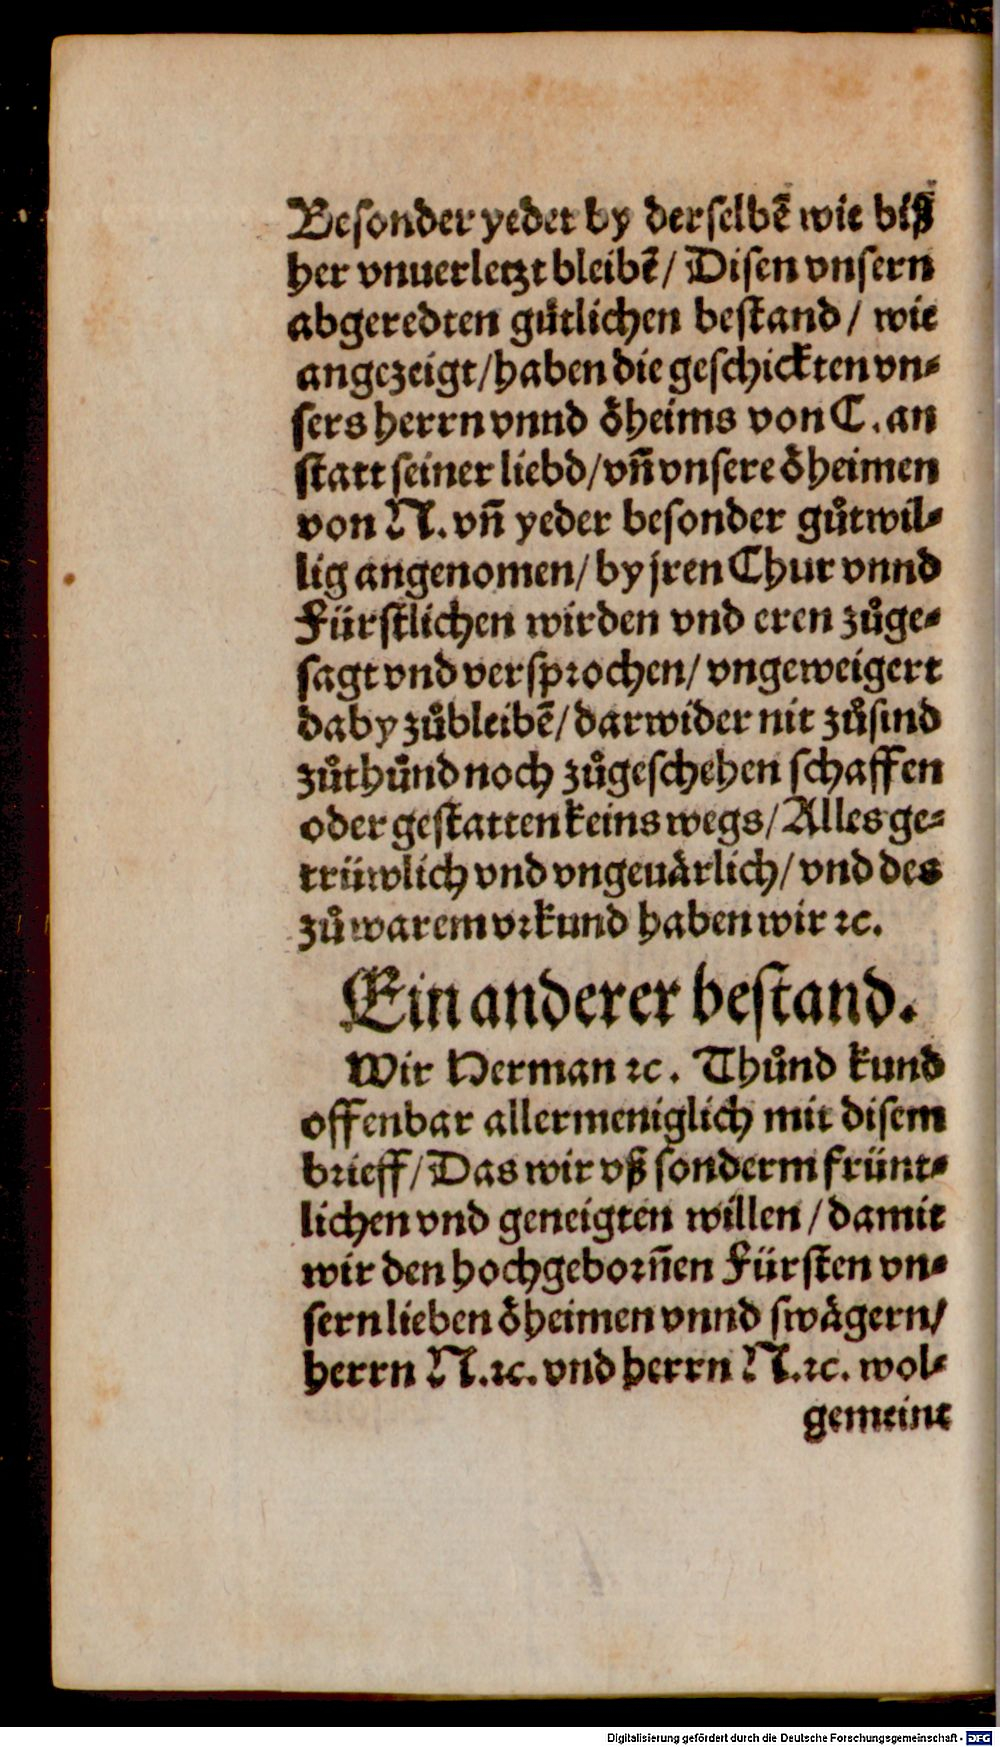 Besonder yeder by derselbē wie biß
her vnuerletzt bleibē / Disen vnsern
abgeredten gütlichen bestand / wie
angezeigt / haben die geschickten vn⸗
sers herrn vnnd öheims von C. an
statt seiner liebd / vñ vnsere öheimen
von N. vñ yeder besonder gůtwil⸗
lig angenomen / by jren Chur vnnd
Fürstlichen wirden vnd eren zůge⸗
sagt vnd versprochen / vngeweigert
daby zůbleibē / darwider nit zůsind
zůthůnd noch zůgeschehen schaffen
oder gestatten keins wegs / Alles ge⸗
trüwlich vnd vngeuärlich / vnd des
zů warem vrkund haben wir ꝛc.
Ein anderer bestand.
Wir Herman ꝛc. Thůnd kund
offenbar allermeniglich mit disem
brieff / Das wir vß sonderm frünt⸗
lichen vnd geneigten willen / damit
wir den hochgeborñen Fürsten vn⸗
sern lieben öheimen vnnd swägern /
herrn N. ꝛc. vnd herrn N. ꝛc. wol⸗
gemeint
Digitalisierung gefördert durch die Deutsche Forschungsgemeinschaft - DFG